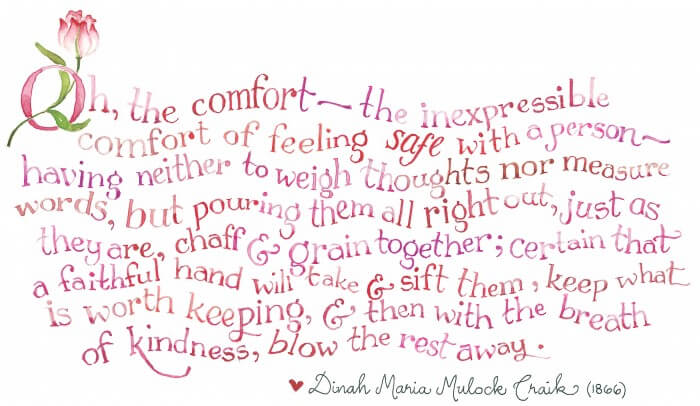 Oh, the comfort~the inexpressible
comfort of feeling safe with a person~
having neither to weigh thoughts nor measure
words, but pouring them all right out, just as
they are, chaff & grain together; certain that
a faithful hand will take & sift them, keep what
is worth keeping, & then with the breath
of kindness, blow the rest away.
♥ Dinah Maria Mulock Craik (1866)